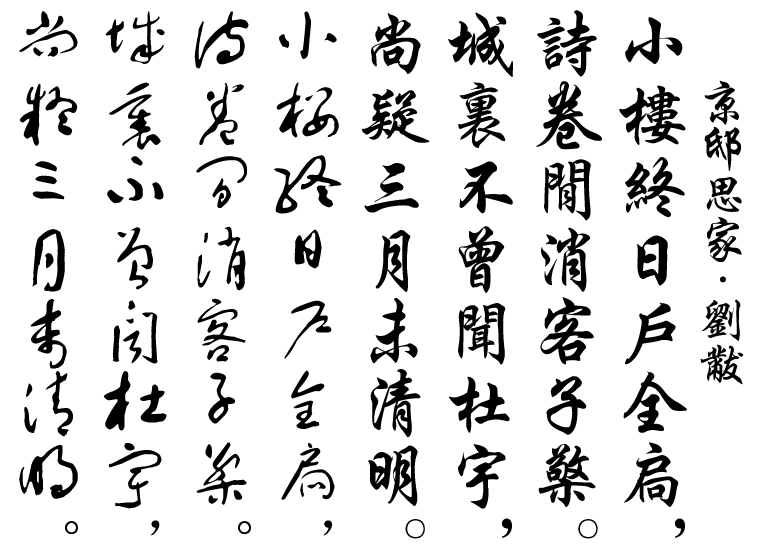 京邸思家·劉黻
小樓終日戶全扃，
詩卷閒消客子檠。
城裏不曾聞杜宇，
尚疑三月未清明。
小樓終日戶全扃，
詩卷閒消客子檠。
城裏不曾聞杜宇，
尚疑三月未清明。